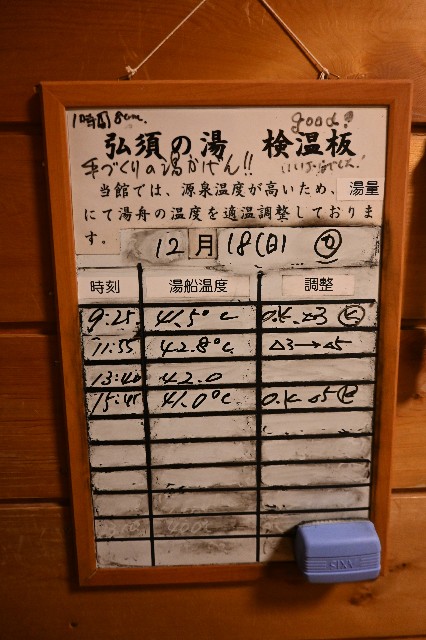 1時間8cm. good!
弘須の湯 検温板
手づくりの湯かげん!!
当館では、源泉温度が高いため、湯量
にて湯舟の温度を適温調整しておりま
す。
12月18(日)
時刻 湯船温度 調整
9:25 41.5°C O.K. △3
11:55 42.8°C △3→△5
13:40 42.0
15:45 41.0°C O.K △5